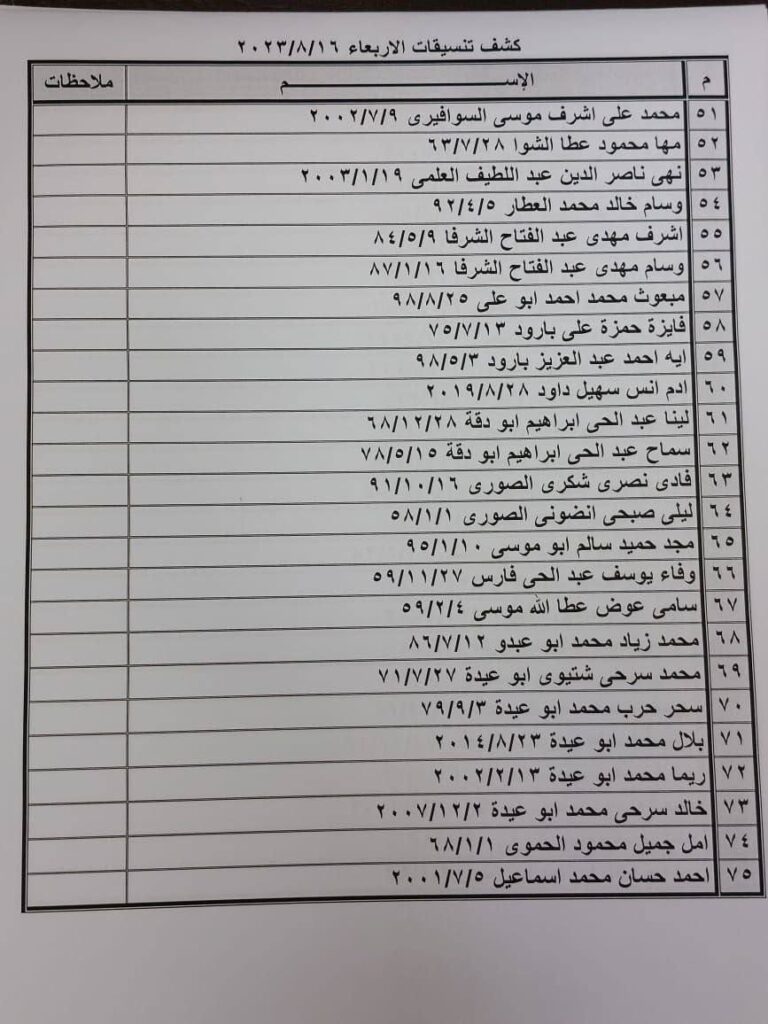 كشف تنسيقات الاربعاء ٢٠٢٣/٨/١٦
م الإســـــم ملاحظات
٥١ محمد على اشرف موسى السوافيرى ٢٠٠٢/٧/٩
٥٢ مها محمود عطا الشوا ٦٣/٧/٢٨
٥٣ نهى ناصر الدين عبد اللطيف العلمى ٢٠٠٣/١/١٩
٥٤ وسام خالد محمد العطار ٩٢/٤/٥
٥٥ اشرف مهدى عبد الفتاح الشرفا ٨٤/٥/٩
٥٦ وسام مهدى عبد الفتاح الشرفا ٨٧/١/١٦
٥٧ مبعوث محمد احمد ابو على ٩٨/٨/٢٥
٥٨ فايزة حمزة على بارود ٧٥/٧/١٣
٥٩ ايه احمد عبد العزيز بارود ٩٨/٥/٣
٦٠ ادم انس سهيل داود ٢٠١٩/٨/٢٨
٦١ لينا عبد الحى ابراهيم ابو دقة ٦٨/١٢/٢٨
٦٢ سماح عبد الحى ابراهيم ابو دقة ٧٨/٥/١٥
٦٣ فادى نصرى شكرى الصورى ٩١/١٠/١٦
٦٤ ليلى صبحى انضونى الصورى ٥٨/١/١
٦٥ مجد حميد سالم ابو موسى ٩٥/١/١٠
٦٦ وفاء يوسف عبد الحى فارس ٥٩/١١/٢٧
٦٧ سامى عوض عطا الله موسى ٥٩/٢/٤
٦٨ محمد زياد محمد ابو عبدو ٨٦/٧/١٢
٦٩ محمد سرحى شتيوى ابو عيدة ٧١/٧/٢٧
٧٠ سحر حرب محمد ابو عيدة ٧٩/٩/٣
٧١ بلال محمد ابو عيدة ٢٠١٤/٨/٢٣
٧٢ ريما محمد ابو عيدة ٢٠٠٢/٢/١٣
٧٣ خالد سرحى محمد ابو عيدة ٢٠٠٧/١٢/٢
٧٤ امل جميل محمود الحموى ٦٨/١/١
٧٥ احمد حسان محمد اسماعيل ٢٠٠١/٧/٥